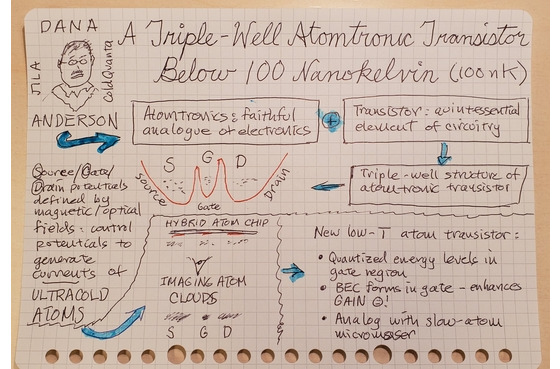 DANA
JILA
ColdQuanta
ANDERSON
A Triple-Well Atomtronic Transistor
Below 100 Nanokelvin (100 nK)
Atomtronics: faithful
analogue of electronics
+
Transistor: quintessential
element of circuitry
Triple-well structure of
atom-tronic transistor
S G D
Source
Gate
Drain
Source/Gate/
Drain potentials
defined by
magnetic/optical
fields: control
potentials to
generate
currents of
ULTRACOLD
ATOMS
HYBRID ATOM CHIP
IMAGING ATOM
CLOUDS
S G D
New low-T atom transistor:
• Quantized energy levels in
gate region
• BEC forms in gate - enhances
GAIN
• Analog with slow-atom
micromaser